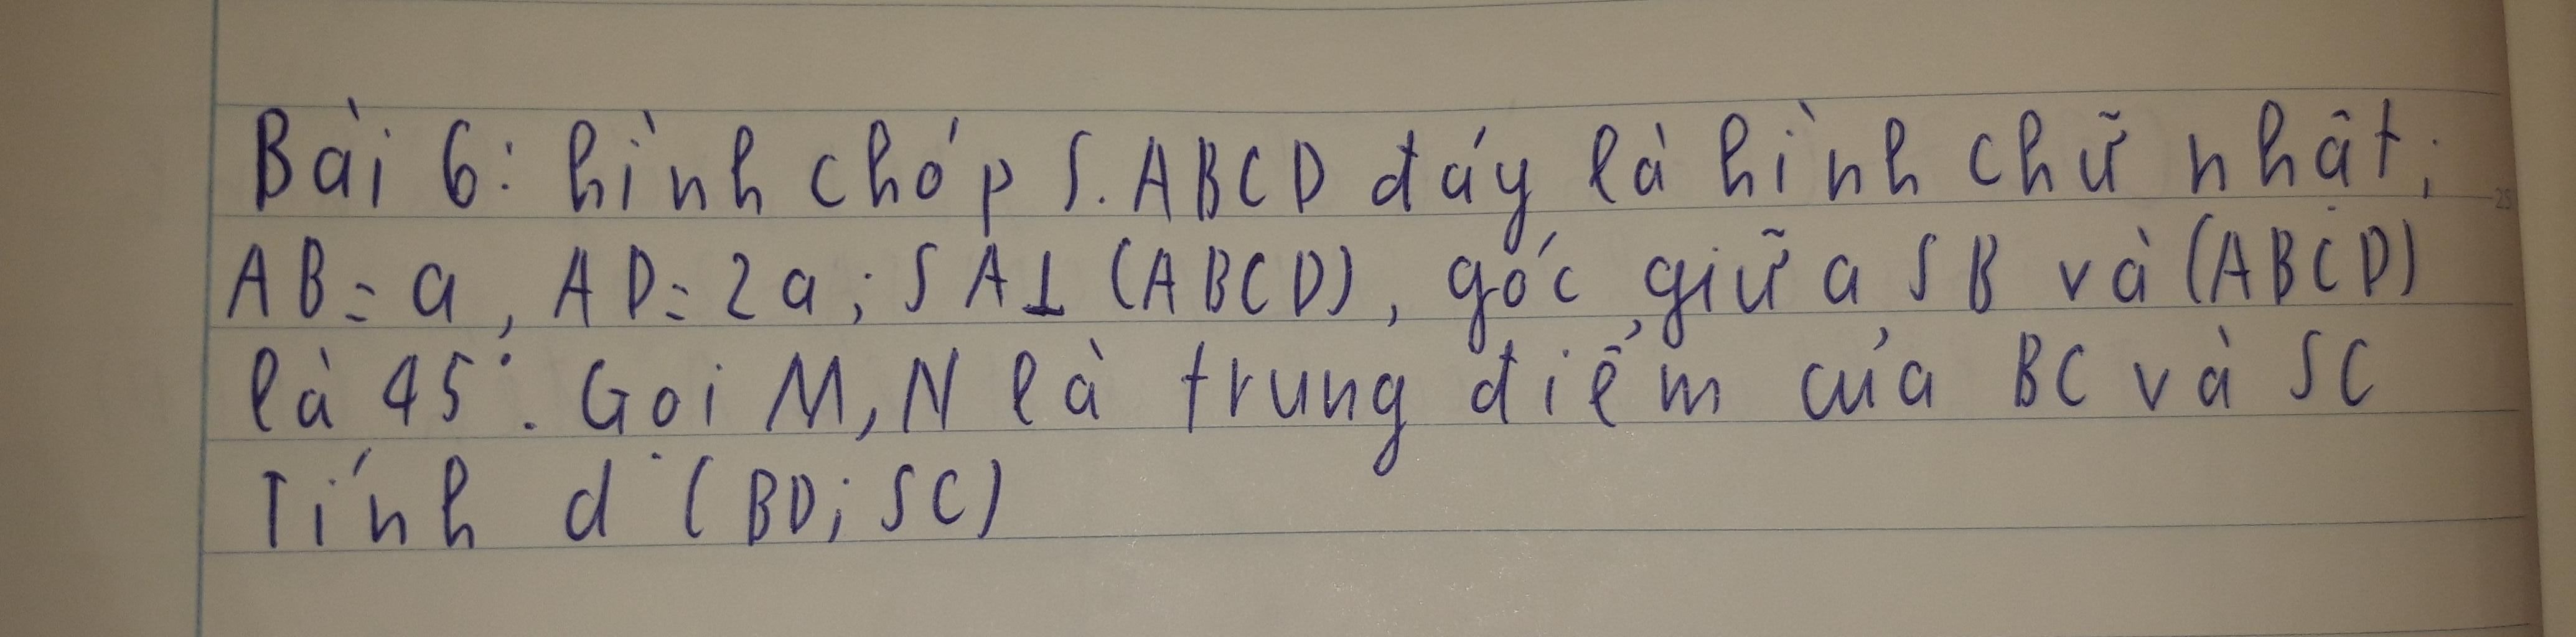 Bài 6: hình chóp S.ABCD đáy là hình chữ nhật;
AB = a, AD = 2a; SA⊥ (ABCD), góc giữa SB và (ABCD)
là 45°. Gọi M, N là trung điểm của BC và SC
Tính d (BD; SC)
25